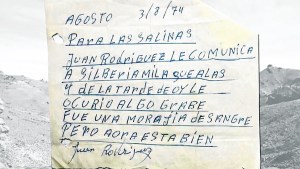 AGOSTO 3/8/74
PARA LAS SALINAS
JUAN RODRIGUEZ LE COMUNICA
A SILBERIA MILA QUE A LAS
4 DE LA TARDE DE OY LE
OCURIO ALGO GRABE
FUE UNA MORAJIA DE SANGRE
PERO AORA ESTA BIEN
Juan Rodriguez